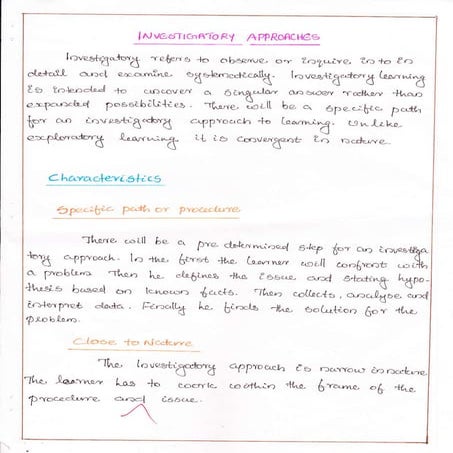 INVESTIGATORY APPROACHES
Investigatory refers to observe or inquire in to in
detail and examine systematically. Investigatory learning
is intended to uncover a singular answer rather than
expanded possibilities. There will be a specific path
for an investigatory approach to learning. Unlike
exploratory learning it is convergent in nature
Characteristics
Specific path or procedure
There will be a pre determined step for an investiga
tory approach. In the first the learner will confront with
a problem Then he defines the issue and stating hypo-
thesis based on known facts. Then collects, analyse and
interpret data. Finally he finds the solution for the
problem.
Close to Nature
The investigatory approach is narrow in nature
The learner has to work within the frame of the
procedure and issue.